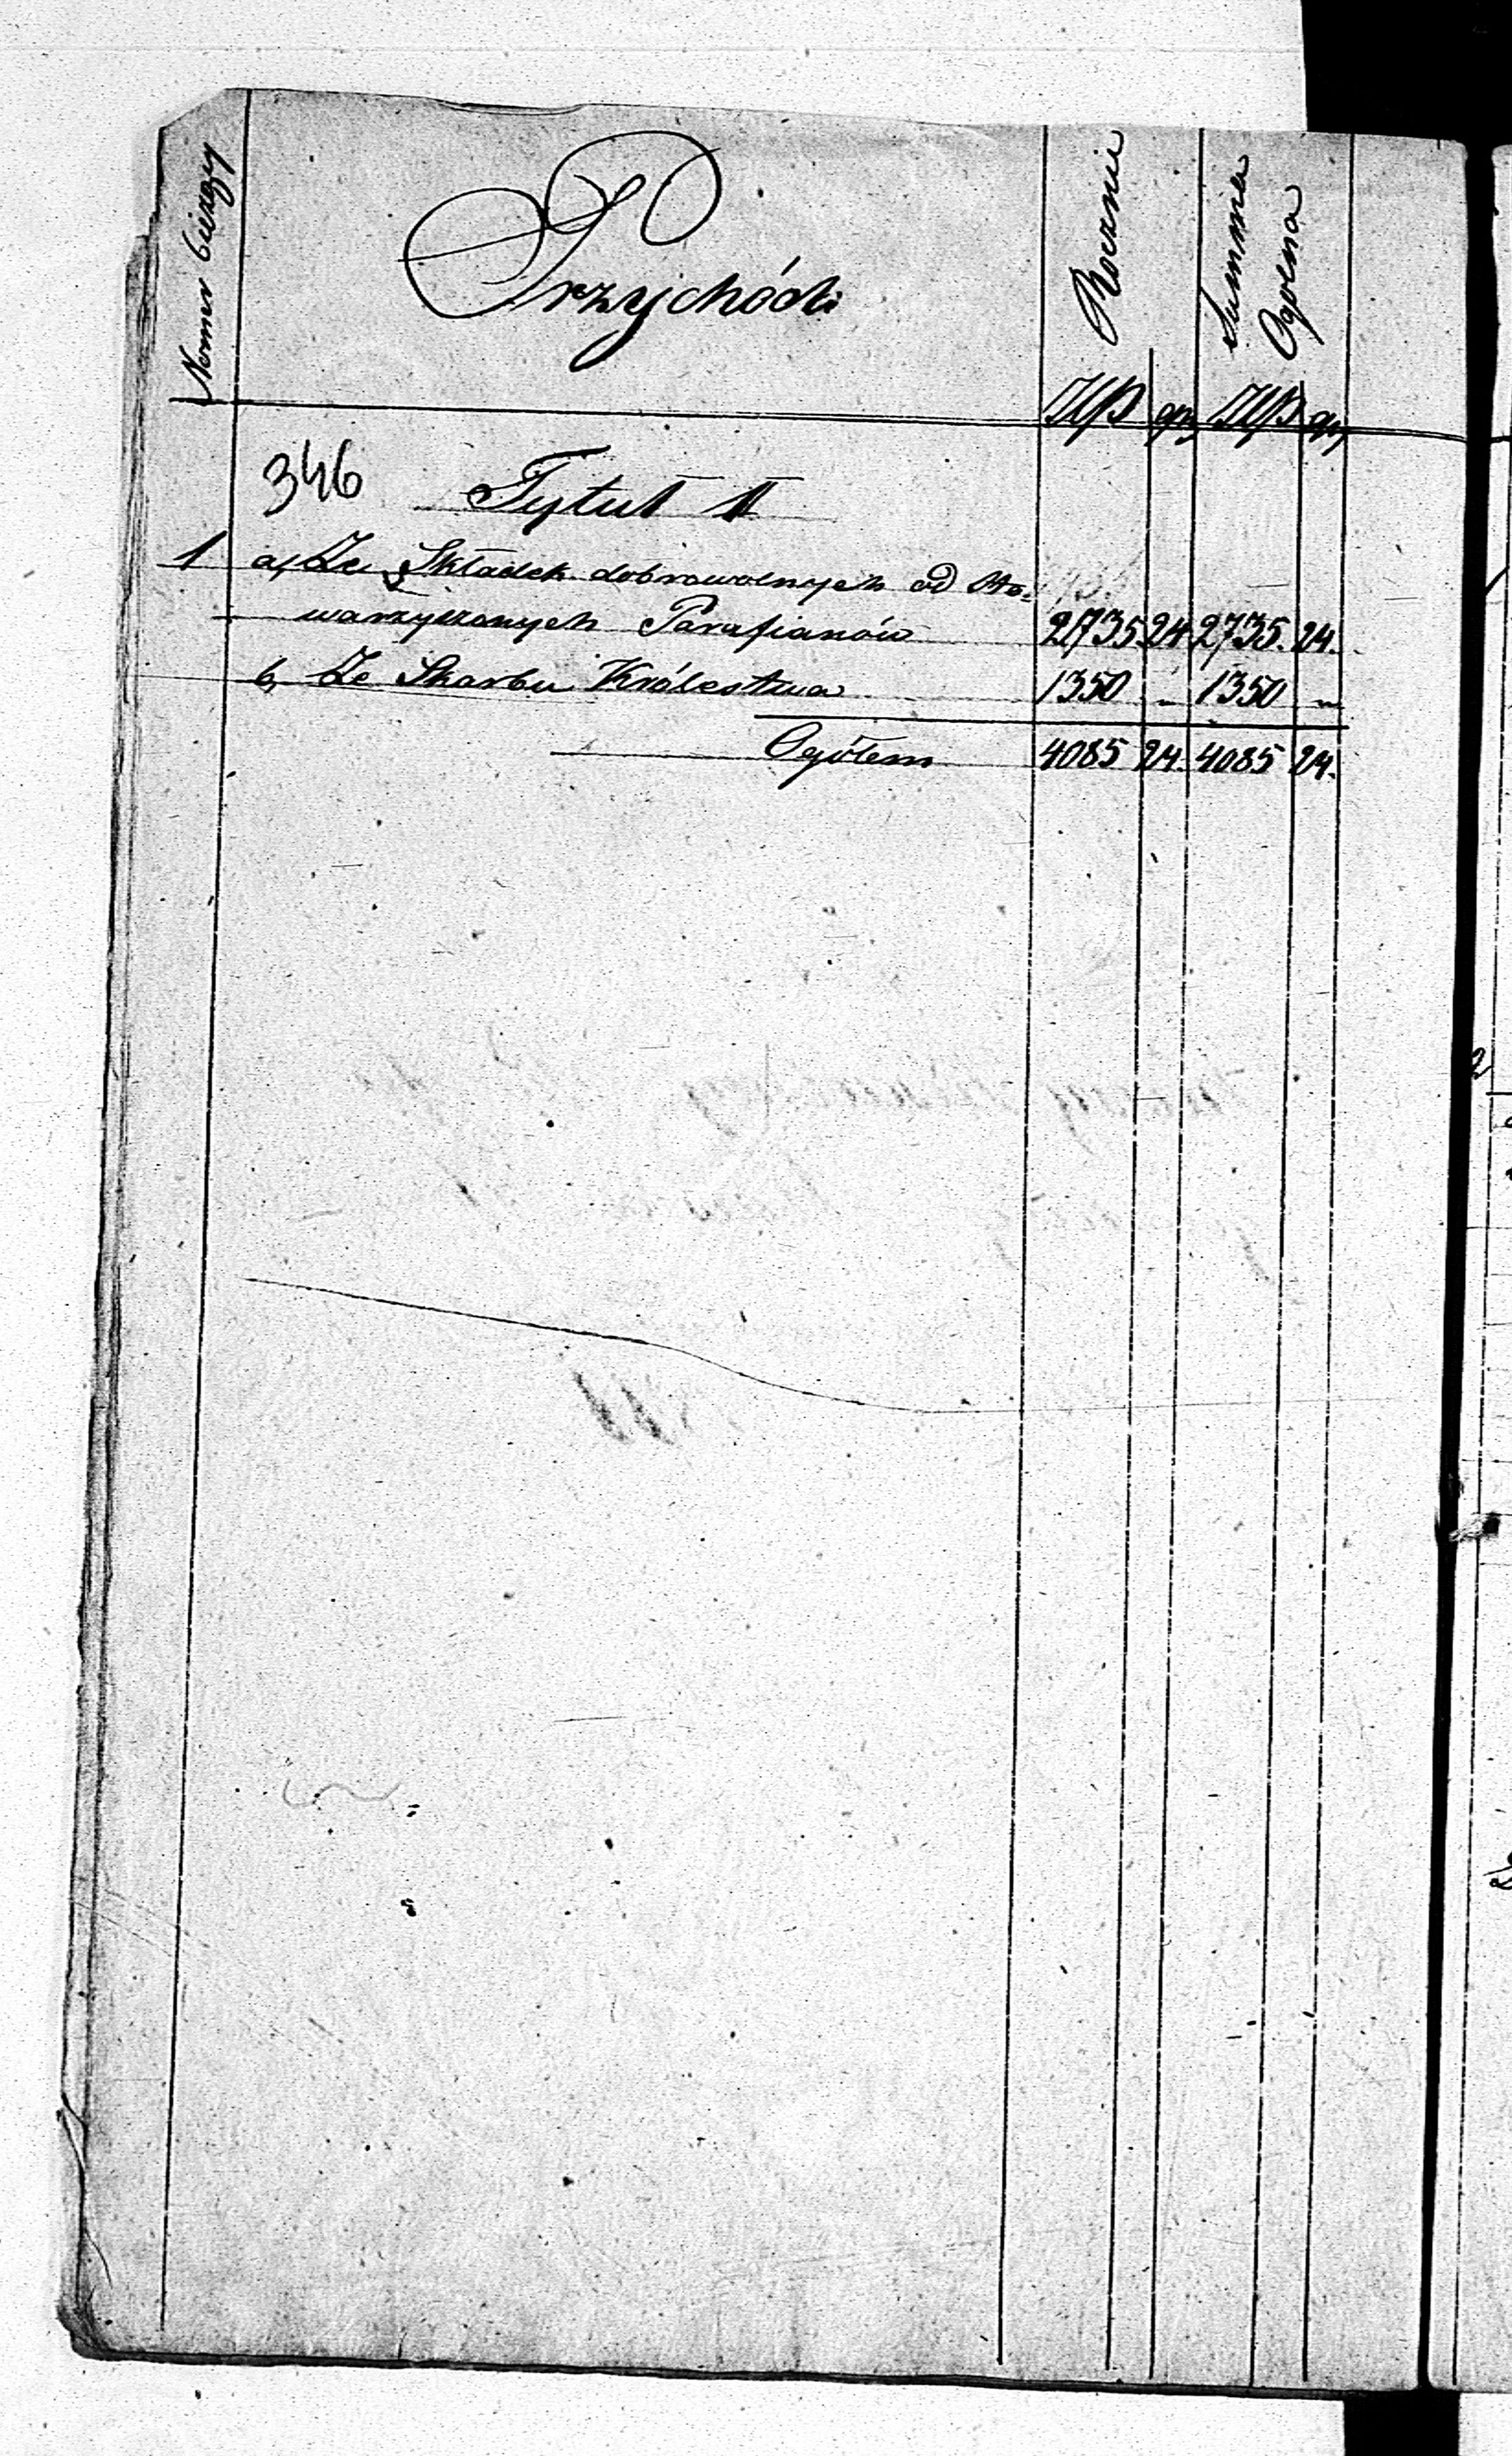 Numer bieżący
Przychód
Rocznie
Summa
Ogólna
Złp gr Złp gr
346 Tytuł II
1 a, Ze Składek dobrowolnych od Sto-
warzyszonych Parafianów 2735 24 2735. 24.
b, Ze Skarbu Królestwa 1350 „ 1350 „
Ogółem 4085 24. 4085 24.